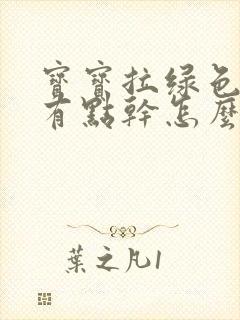 寶寶拉绿色
有點幹怎麼
葉之凡1